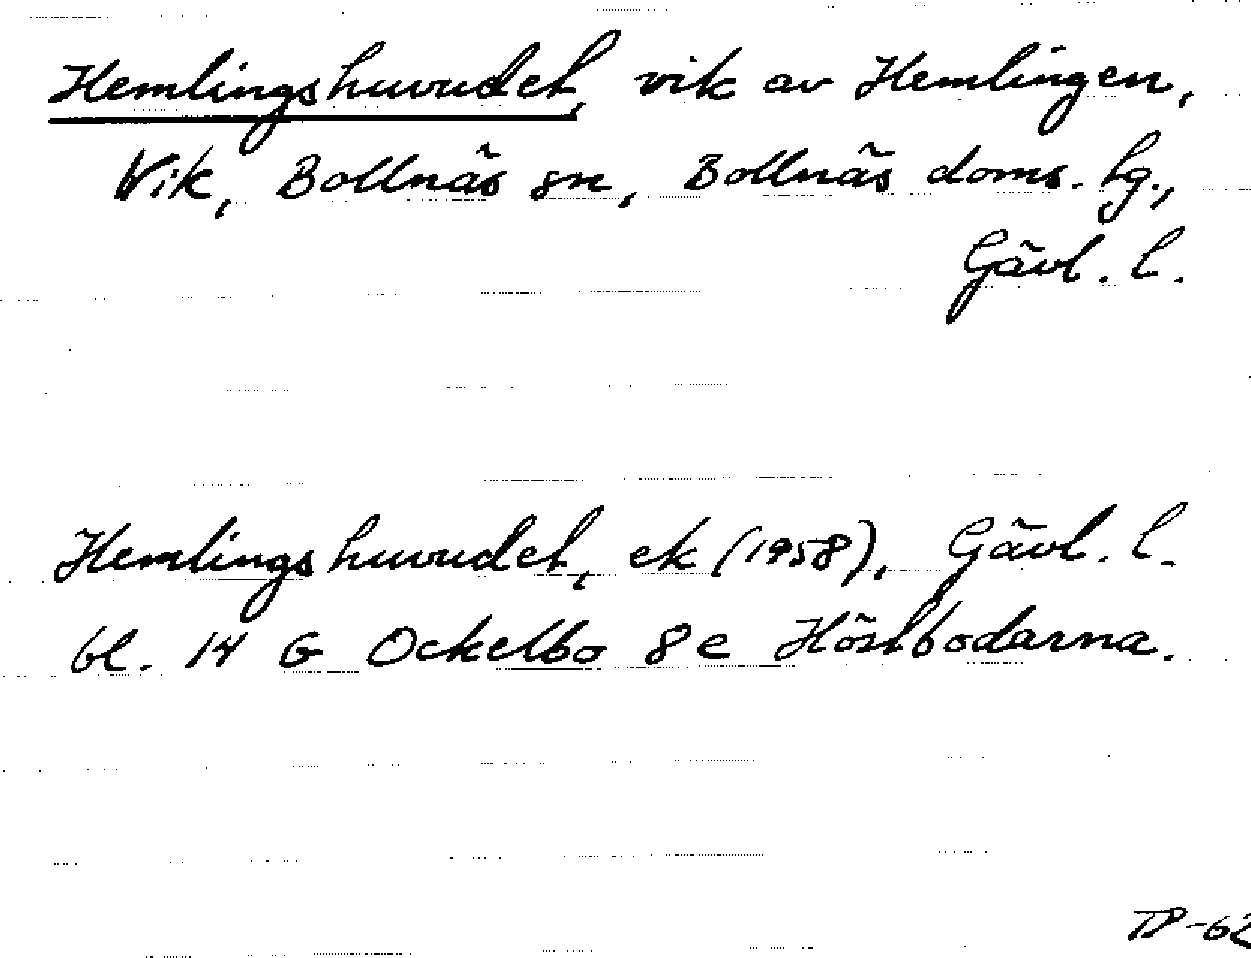 Hemlingshuvudet, vik av Hemlingen,
Vik, Bollnäs sn, Bollnäs doms. hg.,
Gävl. l.
Hemlingshuvudet, ek (1958), Gävl. l.
bl. 14 G Ockelbo 8 e Höstbodarna.
TP-62